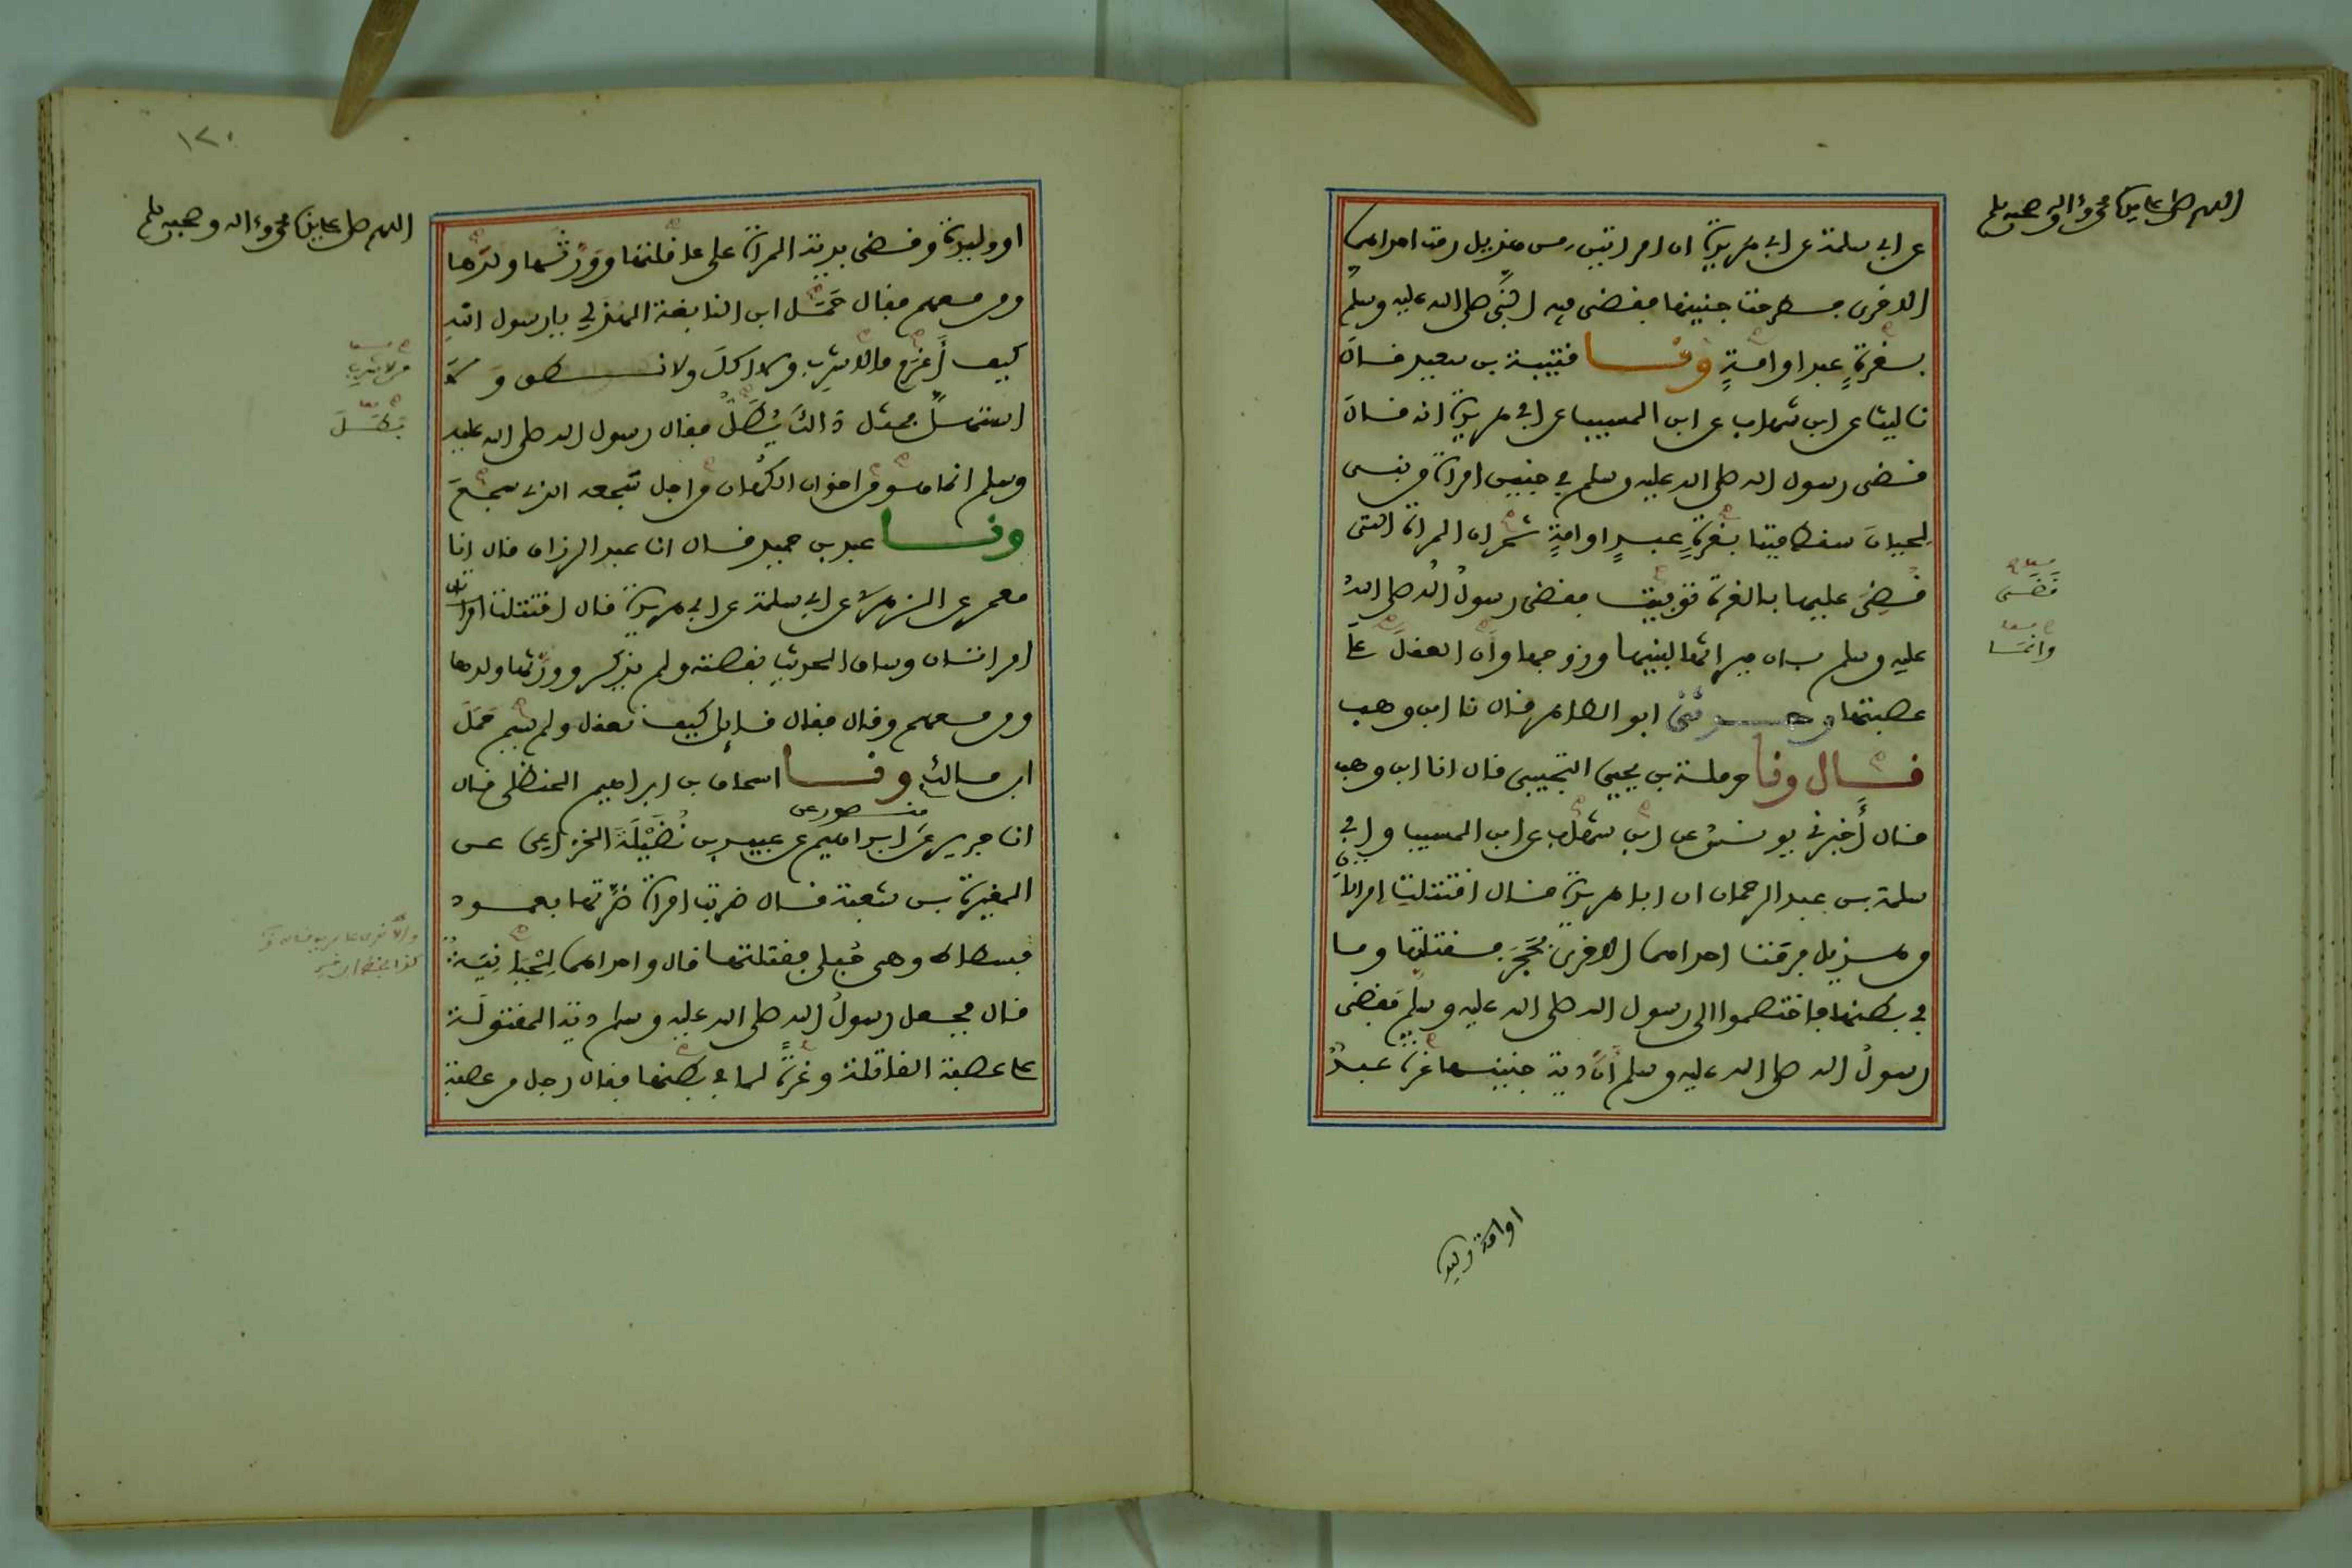 اللهم صل على سيدنا محمد وءاله وصحبه وسلم
عن ابي سلمة عن ابي هريرة ان امراتين من هذيل رمت احداهما
الاخرى فطرحت جنينها فقضى فيه النبي صلى الله عليه وسلم
بغرةٍ عبد او امةٍ ونا قتيبة بن سعيد قال
نا ليث عن ابن شهاب عن ابن المسيب عن ابي هريرة انه قال
قضى رسول الله صلى الله عليه وسلم في جنين امراة من بنى
لحيان سقط ميتا بغرةٍ عبدٍ او امةٍ ثم ان المراة التى
قُضِىَ عليها بالغرة توفيت فقضى رسولُ الله صلى الله
عليه وسلم بان ميراثها لبنيها وزوجها وان العقل على
عصبتها وحدثنى ابو الطاهر قال نا ابن وهب
قال ونا حرملة بن يحيى التجيبى قال انا ابن وهب
قال أَخبرنى يونس عن ابن شهاب عن ابن المسيب وابي
سلمة بن عبد الرحمان ان ابا هريرة قال اقتتلت امراتان
من هذيل فرمت احداهما الاخرى بحَجَرٍ فقتلتها وما
في بطنها فاختصموا الى رسول الله صلى الله عليه وسلم فقضى
رسولُ الله صلى الله عليه وسلم انَّ دية جنينها غرة عبدٌ
قَضَى
وانما
او امة وليد
١٢٠
اللهم صل على سيدنا محمد وءاله وصحبه وسلم
او وليدة وقضى بدية المراة على عاقلتها وورثها ولدها
ومن معهم فقال حَمَل ابن النابغة الهذلي يا رسول الله
كيف أَغرَم من لا شرب ولا اكلَ ولا نطق وَلا
استهلَّ فمثل ذالك يُطَلُّ فقال رسول الله صلى الله عليه
وسلم انما هو من اخوان الكُهان من اجل سجعه الذى سجعَ
ونا عبد بن حميد قال انا عبد الرزاق قال انا
معمر عن الزهرى عن ابي سلمة عن ابي هريرة قال اقتتلت امراتان
امراتان وساق الحديث بقصته ولم يذكر وورثها ولدها
ومن معهم وقال فقال قائل كيف نعقل ولم يسم حَمَلَ
ابن مالك ونا اسحاق بن ابراهيم الحنظلى قال
انا جرير عن منصور عن ابراهيم عن عبيد بن نُضَيْلَةَ الخزاعى عن
المغيرة بن شعبة قال ضربت امراة ضَرَّتها بعمود
فسطاط وهى حُبلى فقتلتها قال واحداهما لِحْيَانِيَّةٌ
قال فجعل رسولُ الله صلى الله عليه وسلم دية المقتولَة
على عصبة القاتلة وغرةً لما في بطنها فقال رجل من عصبة
من لا شرب
بَطَلَ